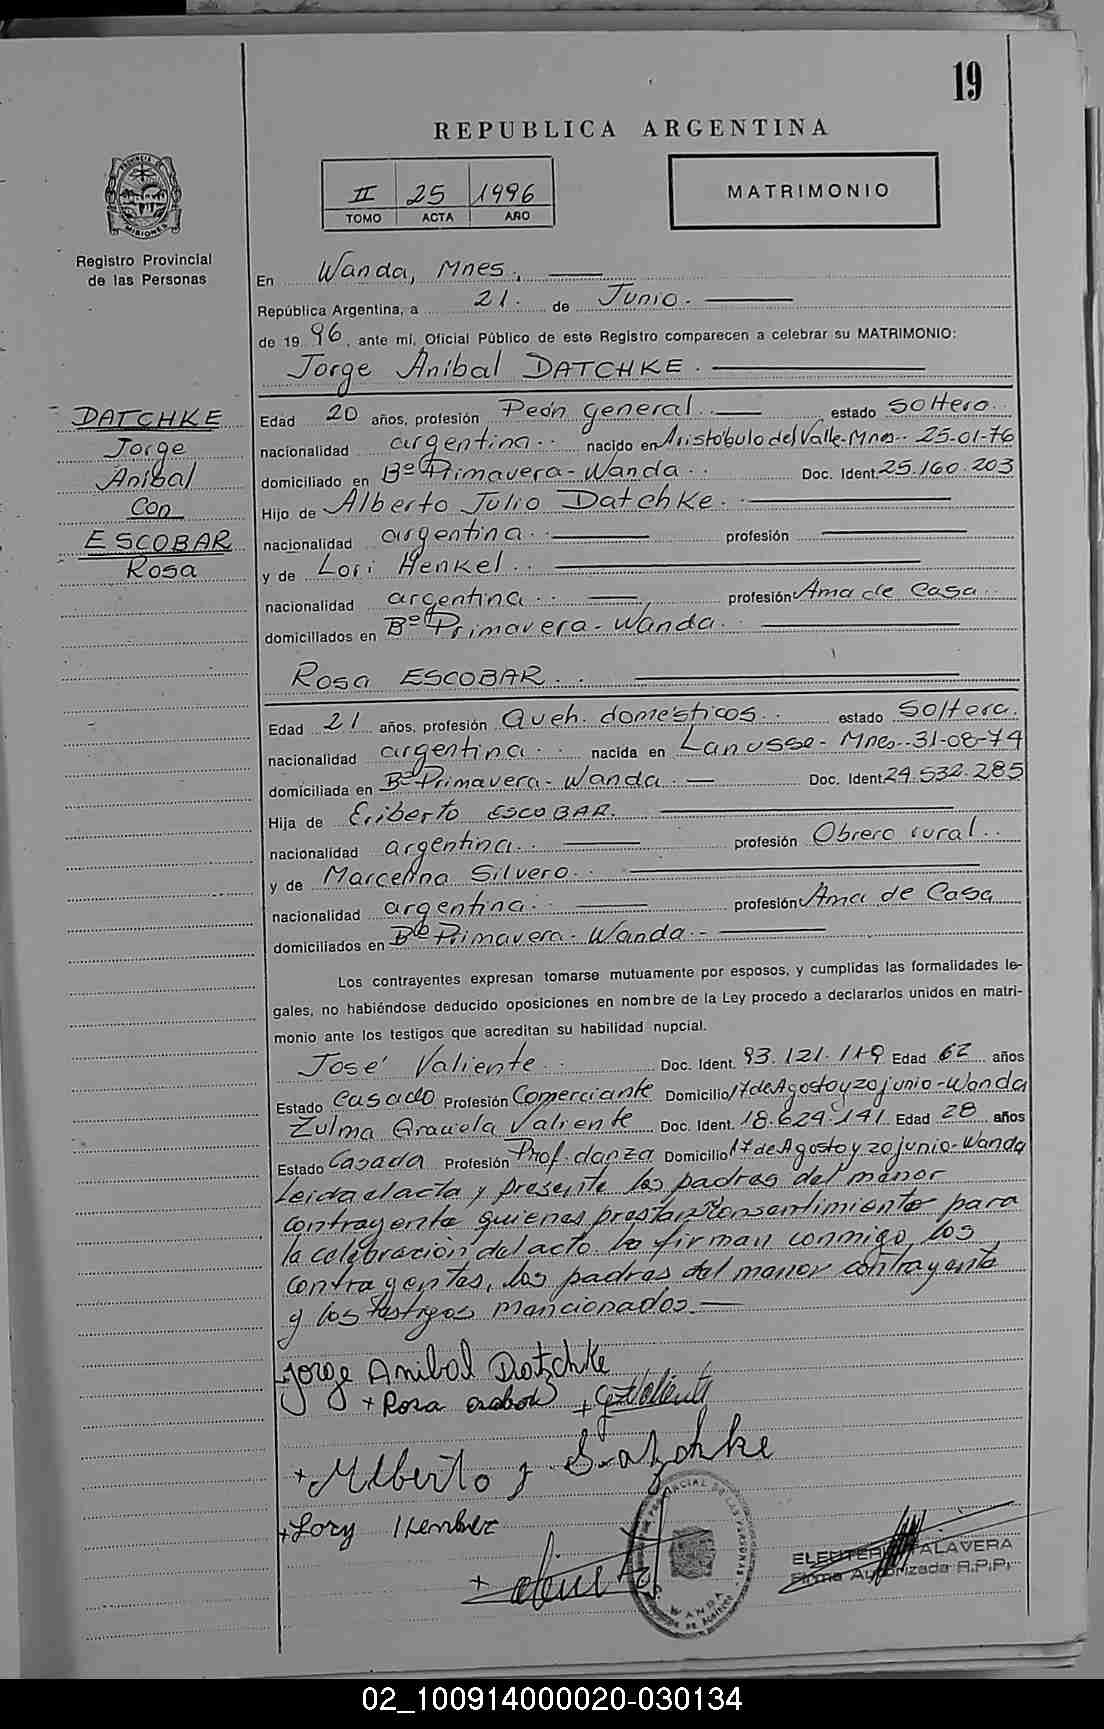 19
REPUBLICA ARGENTINA
II 25 1996
TOMO ACTA AÑO
MATRIMONIO
PROVINCIA DE MISIONES
Registro Provincial
de las Personas
En Wanda, Mnes.
República Argentina, a 21. de Junio.
de 19 96, ante mí, Oficial Público de este Registro comparecen a celebrar su MATRIMONIO:
Jorge Anibal DATCHKE.
DATCHKE
Jorge
Anibal
Con
ESCOBAR
Rosa
Edad 20 años, profesión Peón general.. estado soltero..
nacionalidad argentina.. nacido en Aristóbulo del Valle-Mnes-- 25-01-76
domiciliado en Bº Primavera-Wanda.. Doc. Ident. 25.160.203
Hijo de Alberto Julio Datchke..
nacionalidad argentina.. profesión
y de Lori Henkel..
nacionalidad argentina.. profesión Ama de Casa..
domiciliados en Bº Primavera-Wanda..
Rosa ESCOBAR..
Edad 21 años, profesión Queh. domésticos.. estado Soltera.
nacionalidad argentina.. nacida en Lanusse- Mnes--31-08-74
domiciliada en Bº Primavera-Wanda. Doc. Ident. 24.532.285
Hija de Eriberto ESCOBAR.
nacionalidad argentina.. profesión Obrero rural..
y de Marcelina Silvero..
nacionalidad argentina.. profesión Ama de Casa
domiciliados en Bº Primavera-Wanda.-
Los contrayentes expresan tomarse mutuamente por esposos, y cumplidas las formalidades le-
gales, no habiéndose deducido oposiciones en nombre de la Ley procedo a declararlos unidos en matri-
monio ante los testigos que acreditan su habilidad nupcial.
José Valiente.. Doc. Ident. 93.121.119 Edad 62 años
Estado Casado Profesión Comerciante Domicilio 17 de Agosto y 20 junio-Wanda
Zulma Graciela Valiente Doc. Ident. 18.624.141 Edad 28 años
Estado Casada Profesión Prof. danza Domicilio 17 de Agosto y 20 junio-Wanda
Leida el acta y presente los padres del menor
contrayente quienes prestan consentimiento para
la celebración del acto la firman conmigo, los
contrayentes, los padres del menor contrayente
y los testigos mencionados.—
Jorge Anibal Datchke
+ Rosa escobar + Valiente
+ Alberto J Datzchke
+ Lory
WANDA
ELEUTERIO TALAVERA
Firma Autorizada R.P.P.
02_100914000020-030134